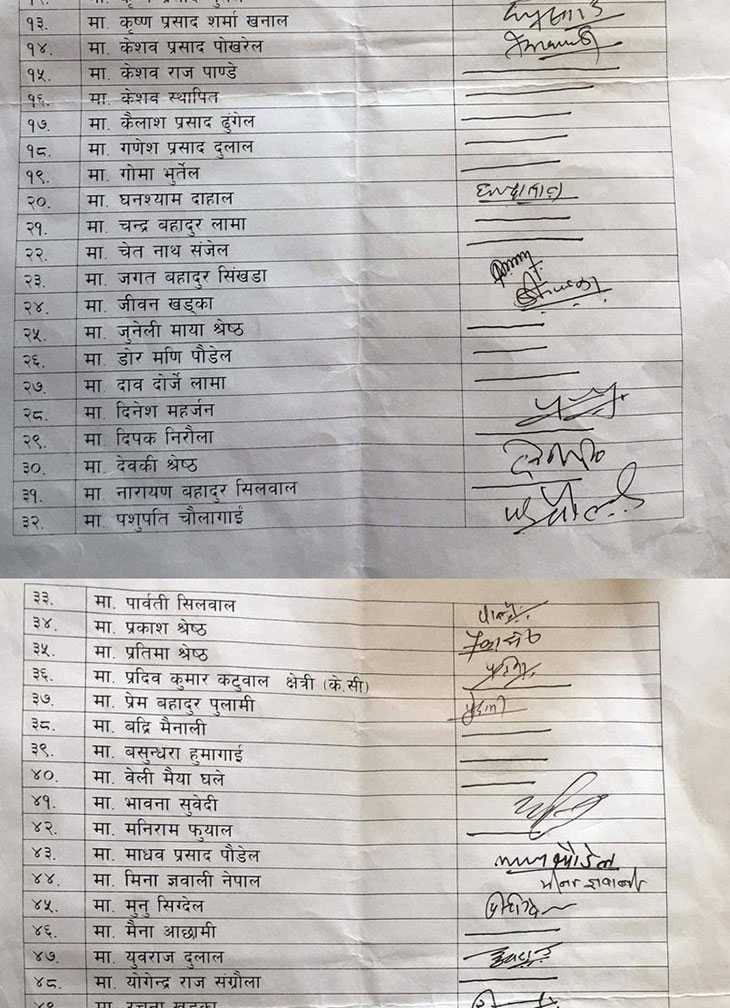 १३. मा. कृष्ण प्रसाद शर्मा खनाल
१४. मा. केशव प्रसाद पोखरेल
१५. मा. केशव राज पाण्डे
१६. मा. केशव स्थापित
१७. मा. कैलाश प्रसाद ढुंगेल
१८. मा. गणेश प्रसाद दुलाल
१९. मा. गोमा भुर्तेल
२०. मा. घनश्याम दाहाल
२१. मा. चन्द्र बहादुर लामा
२२. मा. चेत नाथ संजेल
२३. मा. जगत बहादुर सिंखडा
२४. मा. जीवन खड्का
२५. मा. जुनेली माया श्रेष्ठ
२६. मा. डोर मणि पौडेल
२७. मा. दाव दोर्जे लामा
२८. मा. दिनेश महर्जन
२९. मा. दिपक निरौला
३०. मा. देवकी श्रेष्ठ
३१. मा. नारायण बहादुर सिलवाल
३२. मा. पशुपति चौलागाई
३३. मा. पार्वती सिलवाल
३४. मा. प्रकाश श्रेष्ठ
३५. मा. प्रतिमा श्रेष्ठ
३६. मा. प्रदिव कुमार कटुवाल क्षेत्री (के.सी)
३७. मा. प्रेम बहादुर पुलामी
३८. मा. बद्रि मैनाली
३९. मा. बसुन्धरा हुमागाई
४०. मा. वेली मैया घले
४१. मा. भावना सुवेदी
४२. मा. मनिराम फुयाल
४३. मा. माधव प्रसाद पौडेल
४४. मा. मिना ज्ञवाली नेपाल
४५. मा. मुनु सिग्देल
४६. मा. मैना आछामी
४७. मा. युवराज दुलाल
४८. मा. योगेन्द्र राज संग्रौला